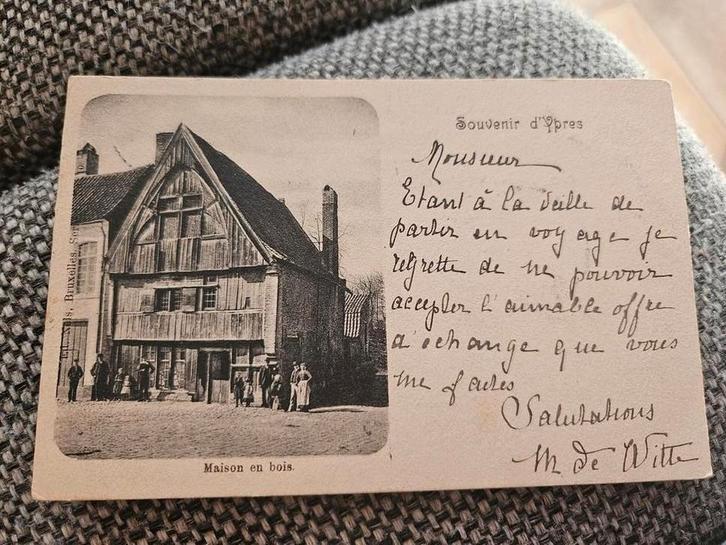 Souvenir d'Ypres
Monsieur
Etant à la veille de
partir en voyage je
regrette de ne pouvoir
accepter l'aimable offre
d'échange que vous
me faites
Salutations
M de Witte
Maison en bois.
Bruxelles. Ser